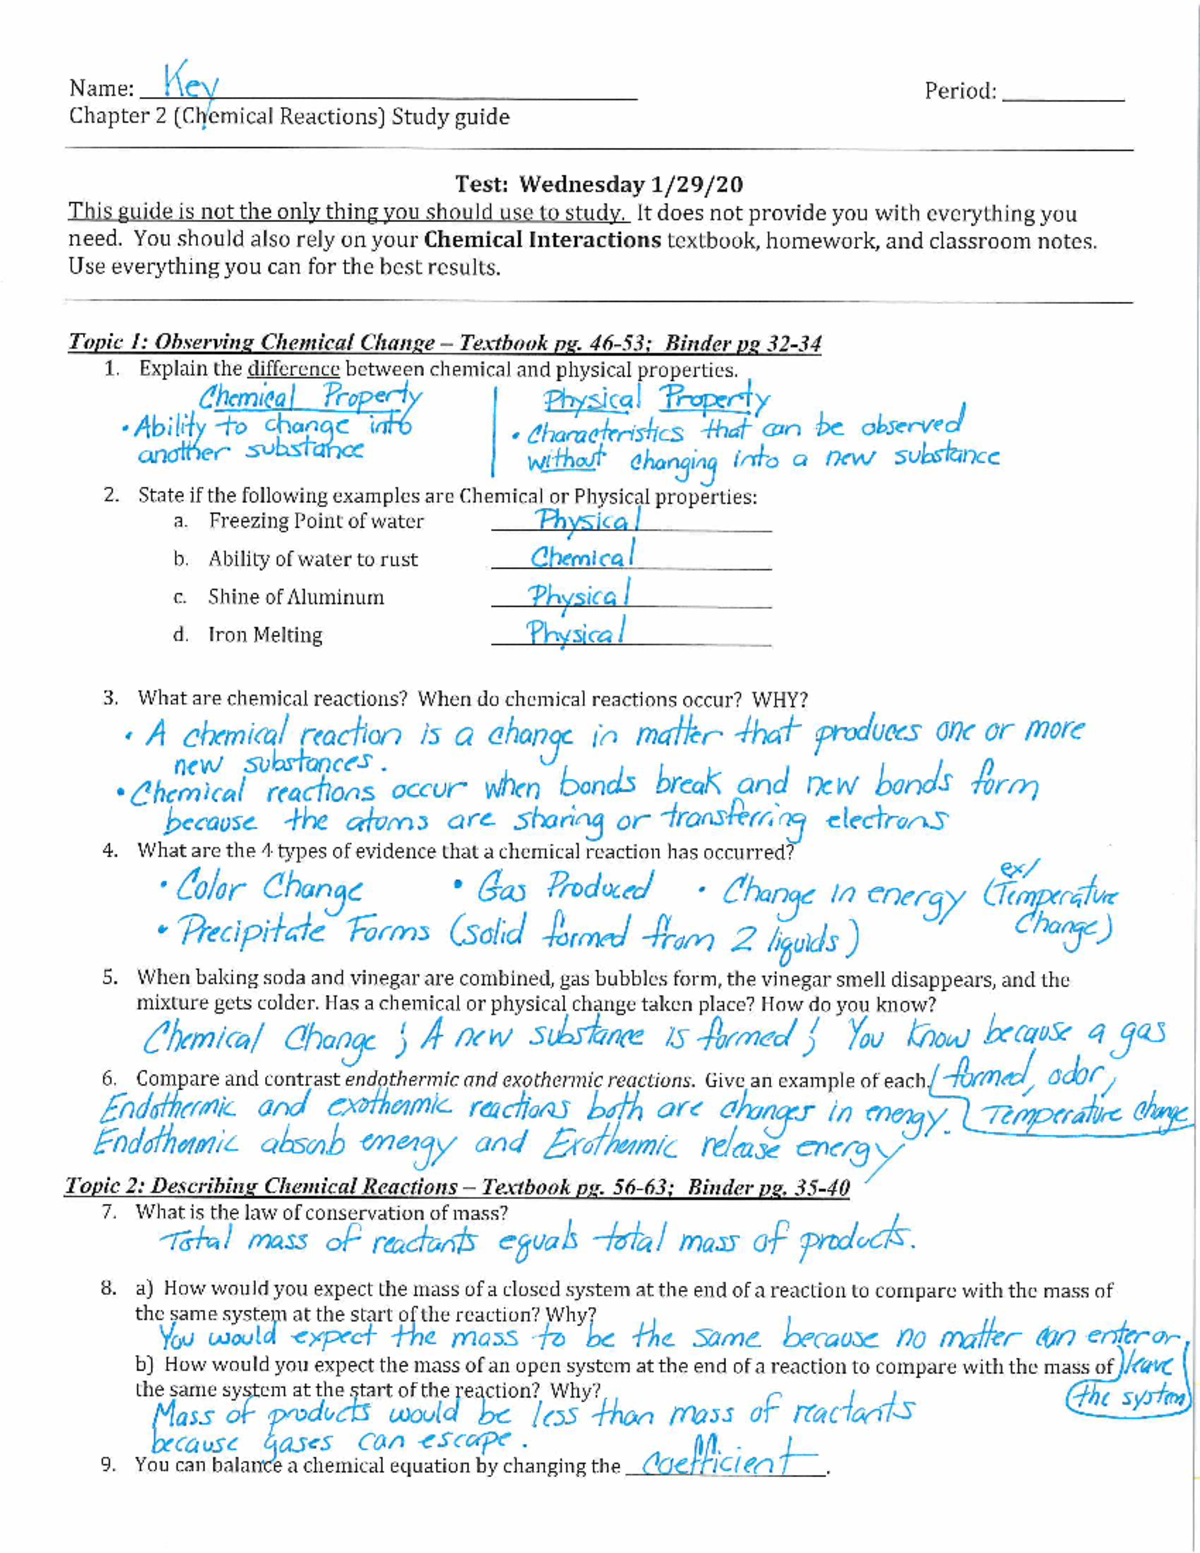 Name: Key Period:
Chapter 2 (Chemical Reactions) Study guide
Test: Wednesday 1/29/20
This guide is not the only thing you should use to study. It does not provide you with everything you
need. You should also rely on your Chemical Interactions textbook, homework, and classroom notes.
Use everything you can for the best results.
Topic 1: Observing Chemical Change – Textbook pg. 46-53; Binder pg 32-34
1. Explain the difference between chemical and physical properties.
Chemical Property
• Ability to change into
another substance
Physical Property
• Characteristics that can be observed
without changing into a new substance
2. State if the following examples are Chemical or Physical properties:
a. Freezing Point of water Physical
b. Ability of water to rust Chemical
c. Shine of Aluminum Physical
d. Iron Melting Physical
3. What are chemical reactions? When do chemical reactions occur? WHY?
• A chemical reaction is a change in matter that produces one or more
new substances.
• Chemical reactions occur when bonds break and new bonds form
because the atoms are sharing or transferring electrons
4. What are the 4 types of evidence that a chemical reaction has occurred?
• Color Change • Gas Produced • Change in energy (ex/ Temperature
Change)
• Precipitate Forms (solid formed from 2 liquids)
5. When baking soda and vinegar are combined, gas bubbles form, the vinegar smell disappears, and the
mixture gets colder. Has a chemical or physical change taken place? How do you know?
Chemical Change ; A new substance is formed ; You know because a gas
formed, odor,
Temperature change
6. Compare and contrast endothermic and exothermic reactions. Give an example of each.
Endothermic and exothermic reactions both are changes in energy.
Endothermic absorb energy and Exothermic release energy
Topic 2: Describing Chemical Reactions – Textbook pg. 56-63; Binder pg. 35-40
7. What is the law of conservation of mass?
Total mass of reactants equals total mass of products.
8. a) How would you expect the mass of a closed system at the end of a reaction to compare with the mass of
the same system at the start of the reaction? Why?
You would expect the mass to be the same because no matter can enter or
leave
the system
b) How would you expect the mass of an open system at the end of a reaction to compare with the mass of
the same system at the start of the reaction? Why?
Mass of products would be less than mass of reactants
because gases can escape.
9. You can balance a chemical equation by changing the coefficient.